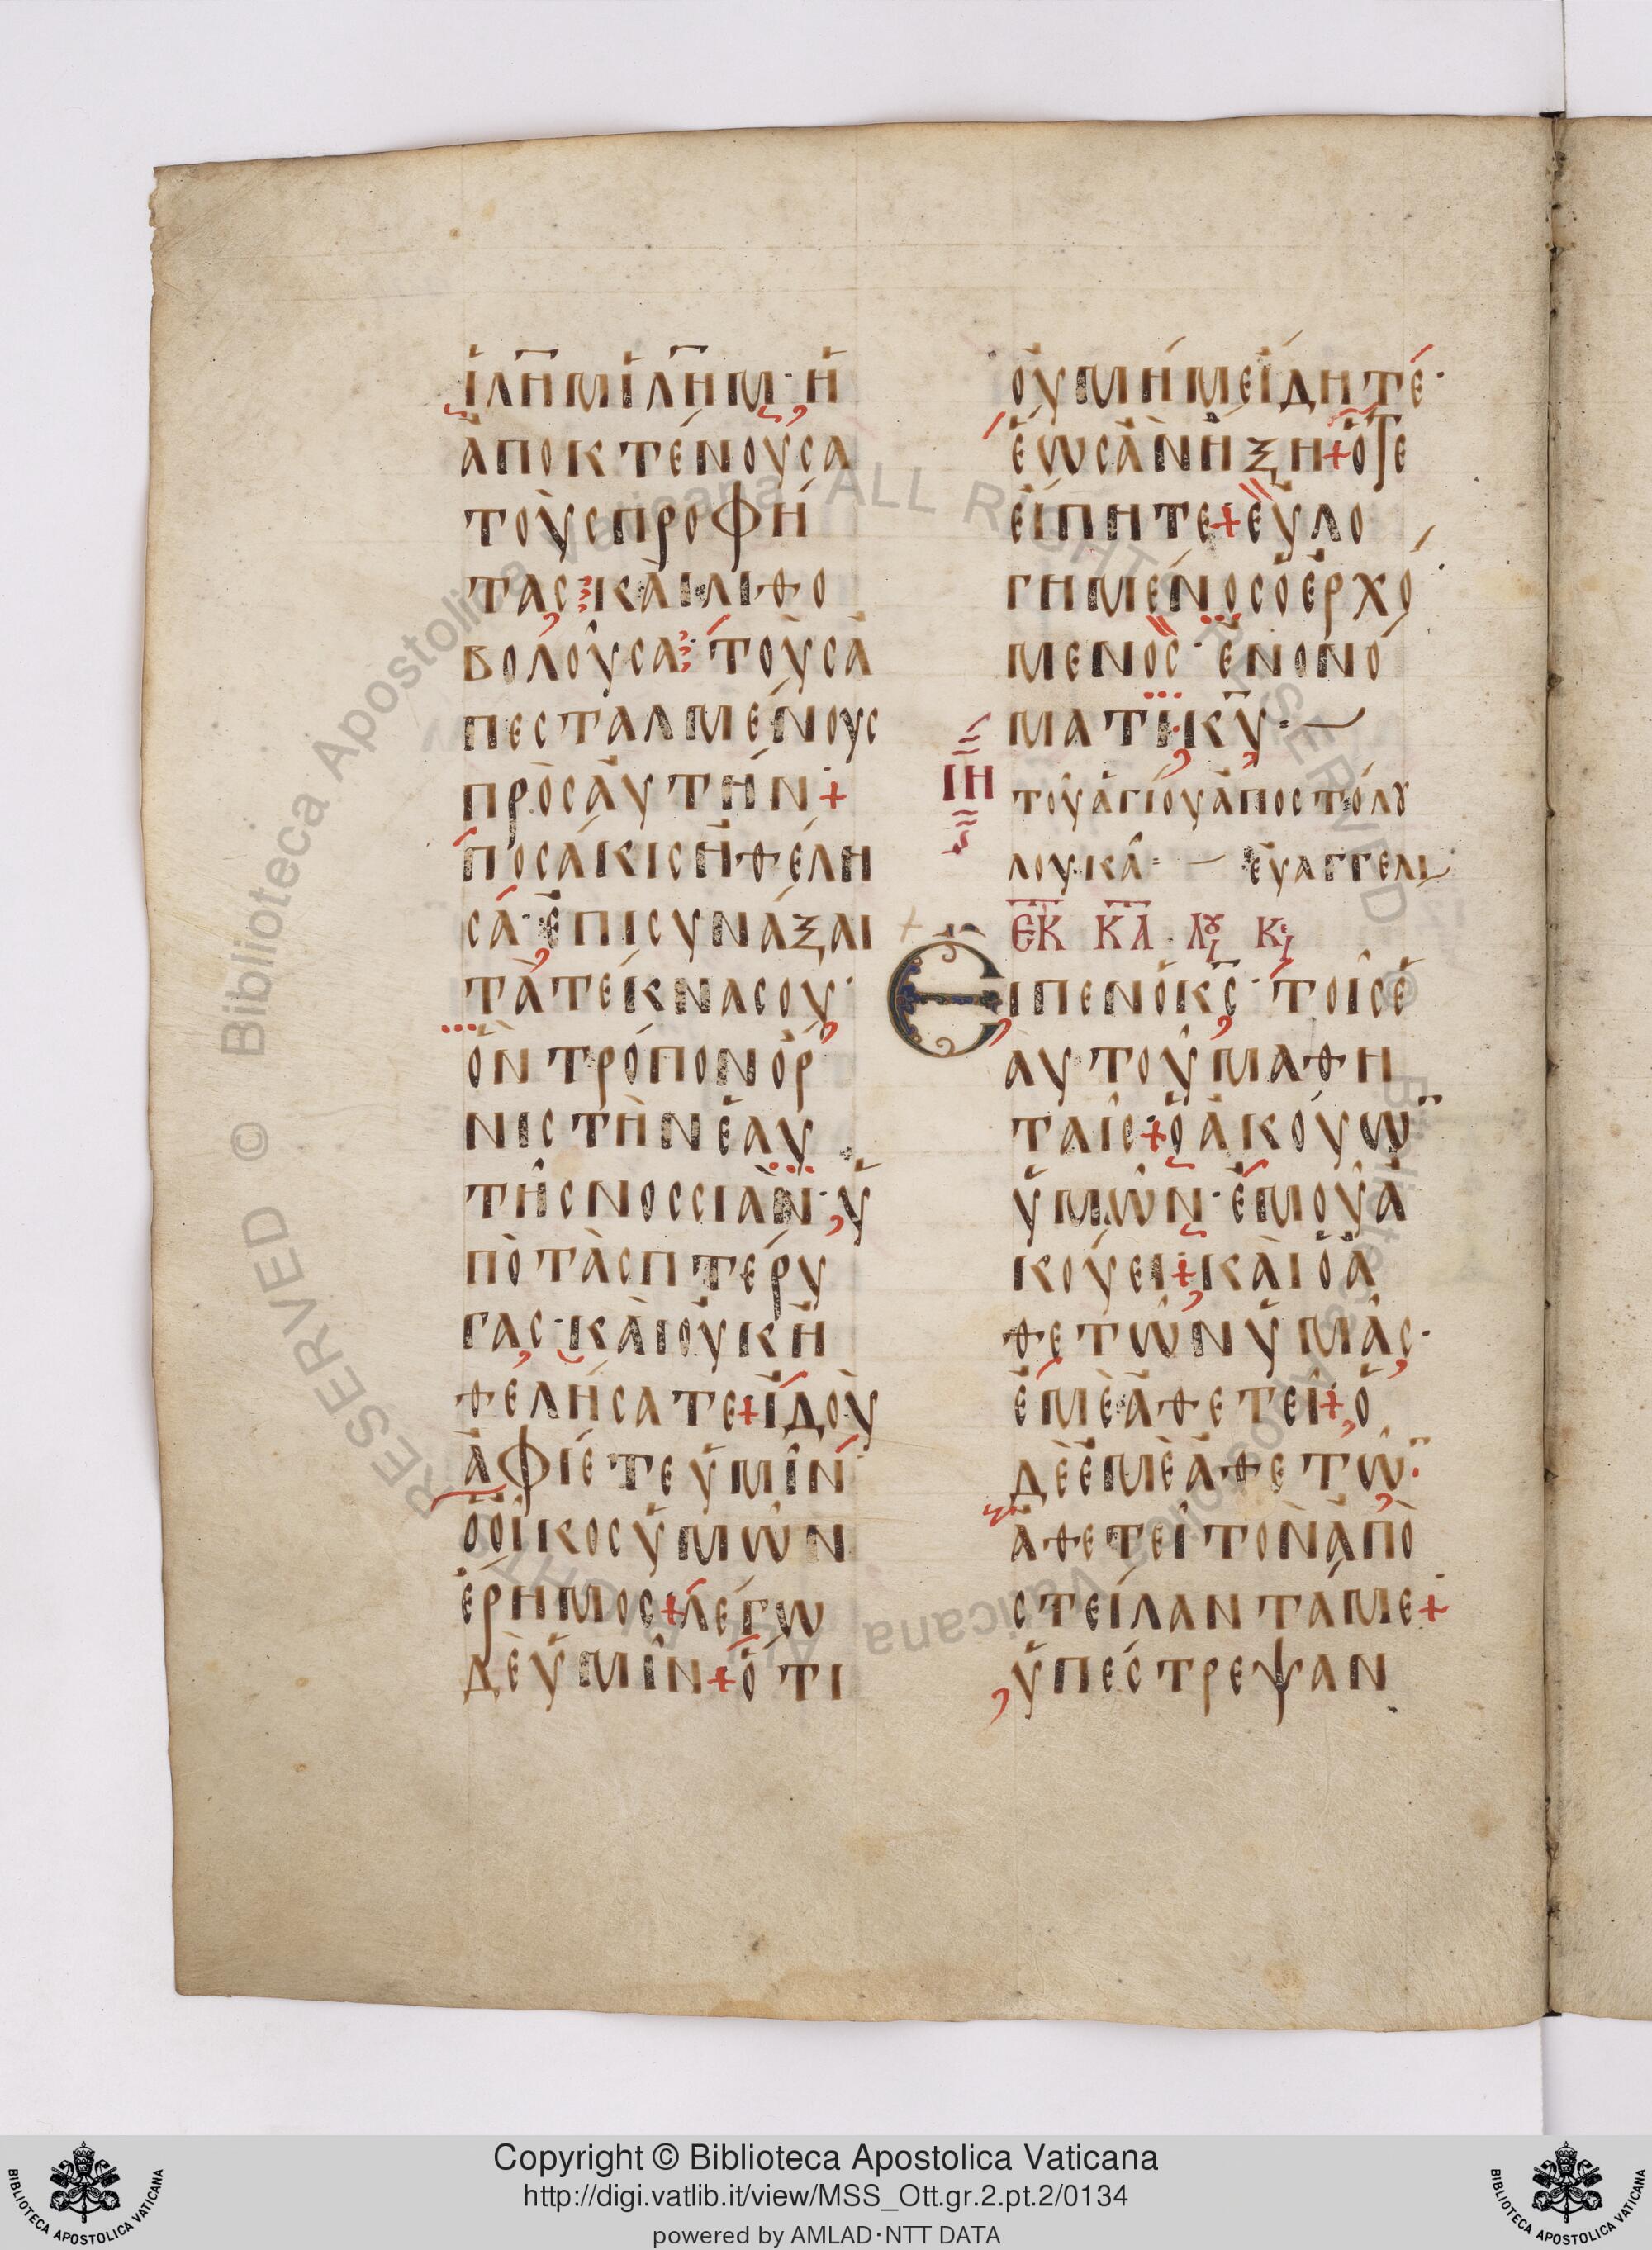 ἸΛ̅Η̅Μ ἸΛ̅Η̅Μ· Ἡ
ἈΠΟΚΤΈΝΟΥΣΑ
ΤΟῪΣ ΠΡΟΦΉ
ΤΑΣ ΚΑῚ ΛΙΘΟ
ΒΟΛΟΥ͂ΣΑ ΤΟῪΣ Ἀ
ΠΕΣΤΑΛΜΈΝΟΥΣ
ΠΡῸΣ ἈΥΤΉΝ +
ΠΟΣΆΚΙΣ ἨΘΈΛΗ
ΣΑ· ἘΠΙΣΥΝΆΞΑΙ
ΤᾺ ΤΈΚΝΑ ΣΟΥ·
ὋΝ ΤΡΌΠΟΝ ὌΡ
ΝΙΣ ΤῊΝ ἙΑΥ
ΤΗ͂Σ ΝΟΣΣΙᾺΝ· Ὑ
ΠῸ ΤᾺΣ ΠΤΈΡΥ
ΓΑΣ· ΚΑῚ ΟΥ̓Κ Ἠ
ΘΕΛΉΣΑΤΕ + ἸΔΟῪ
ἈΦΊΕΤΕ ὙΜΙ͂Ν
Ὁ ΟἾΚΟΣ ὙΜΩ͂Ν
ἘΡΗΜΟΣ + ΛΈΓΩ
ΔῈ ὙΜΙ͂Ν + ὍΤΙ
ΟΥ̓ ΜΉ ΜΕ ἼΔΗΤΕ·
ἙΩΣ ᾺΝ ἭΞΗ + ὍΤΕ
ΕἼΠΗΤΕ + ΕΥ̓ΛΟ
ΓΗΜΈΝΟΣ Ὁ ἘΡΧΌ
ΜΕΝΟΣ· ἘΝ ὈΝΌ
ΜΑΤΙ Κ̅Υ̅·
ΙΗ
ΤΟΥ͂ ἉΓΊΟΥ ἈΠΟΣΤΌΛȢ
ΛΟΥΚΑ͂ ΕΥ̓ΑΓΓΕΛΙ
ΕΚ ΚΛ ΛȢ ΚΕ
ΕἾΠΕΝ Ὁ Κ̅Σ̅· ΤΟΙ͂Σ Ἑ
ΑΥΤΟΥ͂ ΜΑΘΗ
ΤΑΙ͂Σ + Ὁ ἈΚΟΎΩ̅
ὙΜΩ͂Ν· ἘΜΟΥ͂ Ἀ
ΚΟΎΕΙ + ΚΑῚ Ὁ Ἀ
ΘΕΤΩ͂Ν ὙΜΑ͂Σ·
ἘΜῈ ἈΘΕΤΕΙ͂ + Ὁ
ΔῈ ἘΜῈ ἈΘΕΤΩ͂̅·
ἈΘΕΤΕΙ͂ ΤῸΝ ἈΠΟ
ΣΤΕΊΛΑΝΤΆ ΜΕ +
ὙΠΈΣΤΡΕΨΑΝ
Copyright © Biblioteca Apostolica Vaticana
http://digi.vatlib.it/view/MSS_Ott.gr.2.pt.2/0134
powered by AMLAD·NTT DATA
BIBLIOTECA APOSTOLICA VATICANA
BIBLIOTECA APOSTOLICA VATICANA